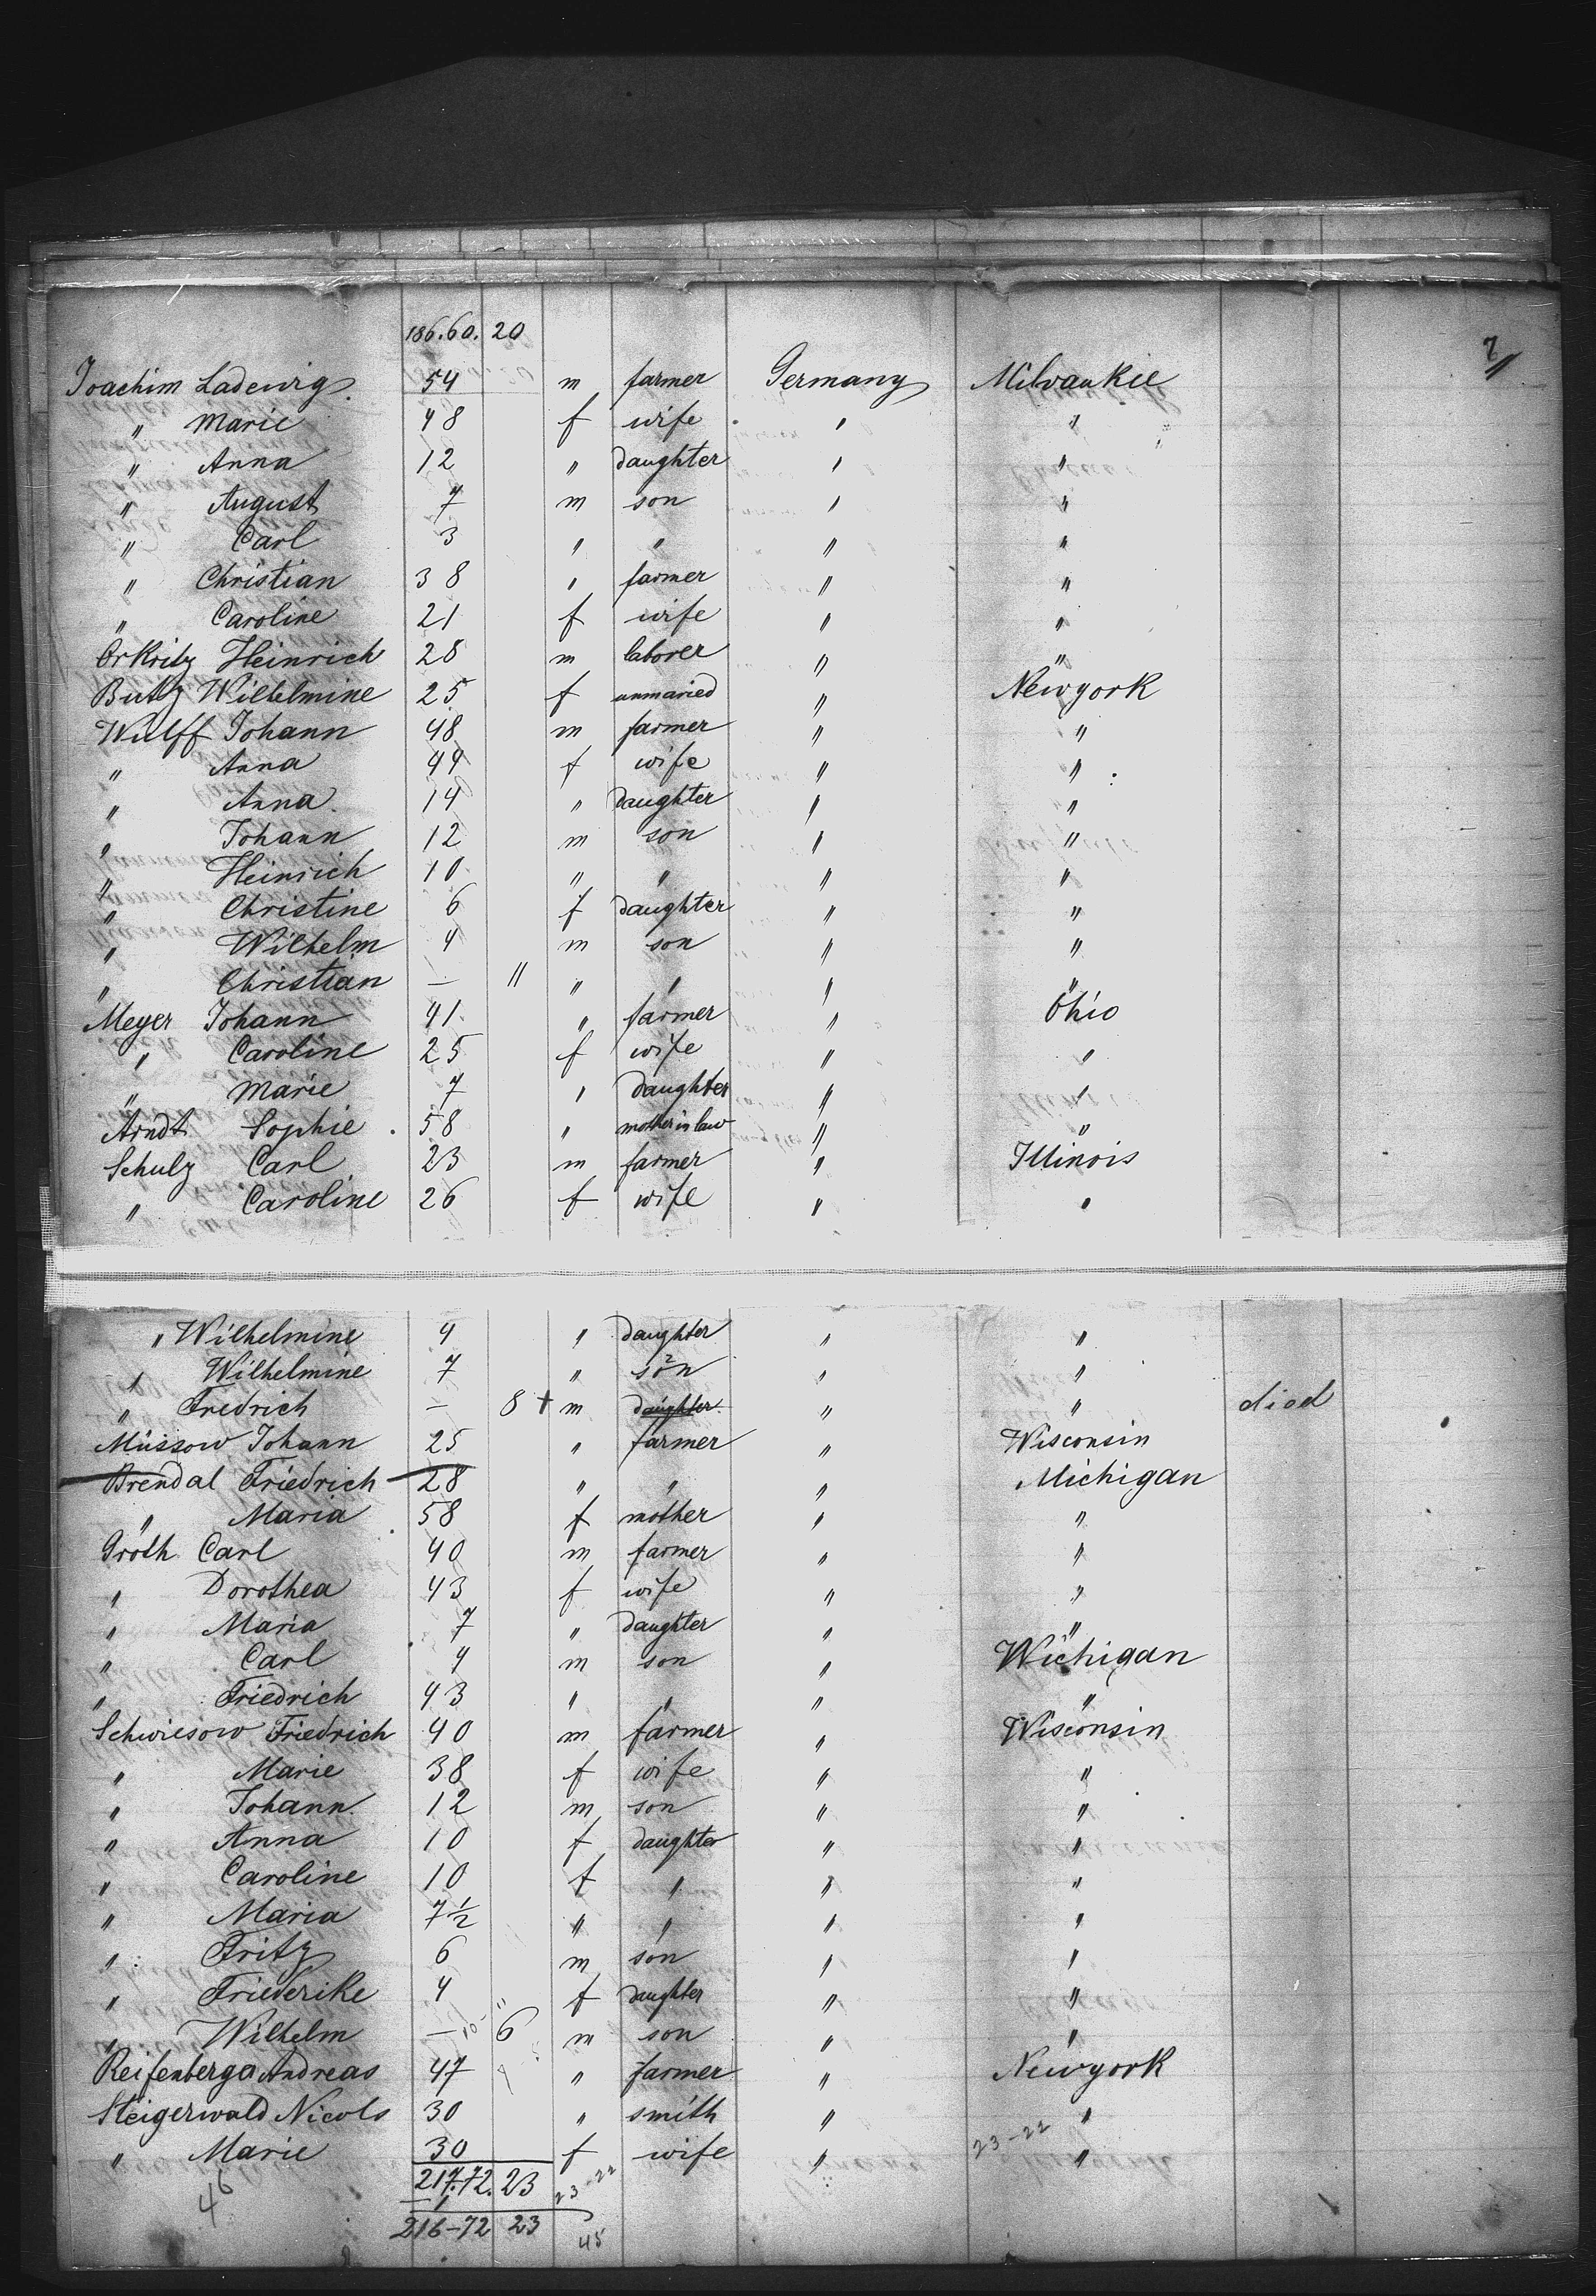 186. 60. 20
7
Joachim Ladewig 54 m farmer Germany Milvaukie
" Marie 48 f wife " "
" Anna 12 " daughter " "
" August 7 m son " "
" Carl 3 " " " "
" Christian 38 " farmer " "
" Caroline 21 f wife " "
Orkritz Heinrich 28 m laborer " "
Butz Wilhelmine 25 f unmaried " Newyork
Wulff Johann 48 m farmer " "
" Anna 44 f wife " "
" Anna 14 " daughter " "
" Johann 12 m son " "
" Heinrich 10 " " " "
" Christine 6 f daughter " "
" Wilhelm 4 m son " "
" Christian — 11 " " " "
Meyer Johann 41 " farmer " Ohio
" Caroline 25 f wife " "
" Marie 7 " daughter " "
Arndt Sophie 58 " mother in law " "
Schulz Carl 23 m farmer " Illinois
" Caroline 26 f wife " "
" Wilhelmine 4 " daughter " "
" Wilhelmine 7 " son " "
" Fredrich — 8 + m daughter " " died
Müssow Johann 25 " farmer " Wisconsin
Brendal Friedrich 28 " " " Michigan
" Maria 58 f mother " "
Groth Carl 40 m farmer " "
" Dorothea 43 f wife " "
" Maria 7 " daughter " "
" Carl 4 m son " Wichigan
" Friedrich 43 " " " "
Schwiesow Friedrich 40 m farmer " Wisconsin
" Marie 38 f wife " "
" Johann 12 m son " "
" Anna 10 f daughter " "
" Caroline 10 f " " "
" Maria 7½ " " " "
" Fritz 6 m son " "
" Friederike 4 f daughter " "
" Wilhelm — 6 m son " "
Reifenberga Andreas 47 " farmer " Newyork
Steigerwald Nicols 30 " smith " "
" Marie 30 f wife " 23-22 "
46 217. 72. 23 23-22
— 1
216-72 23 45